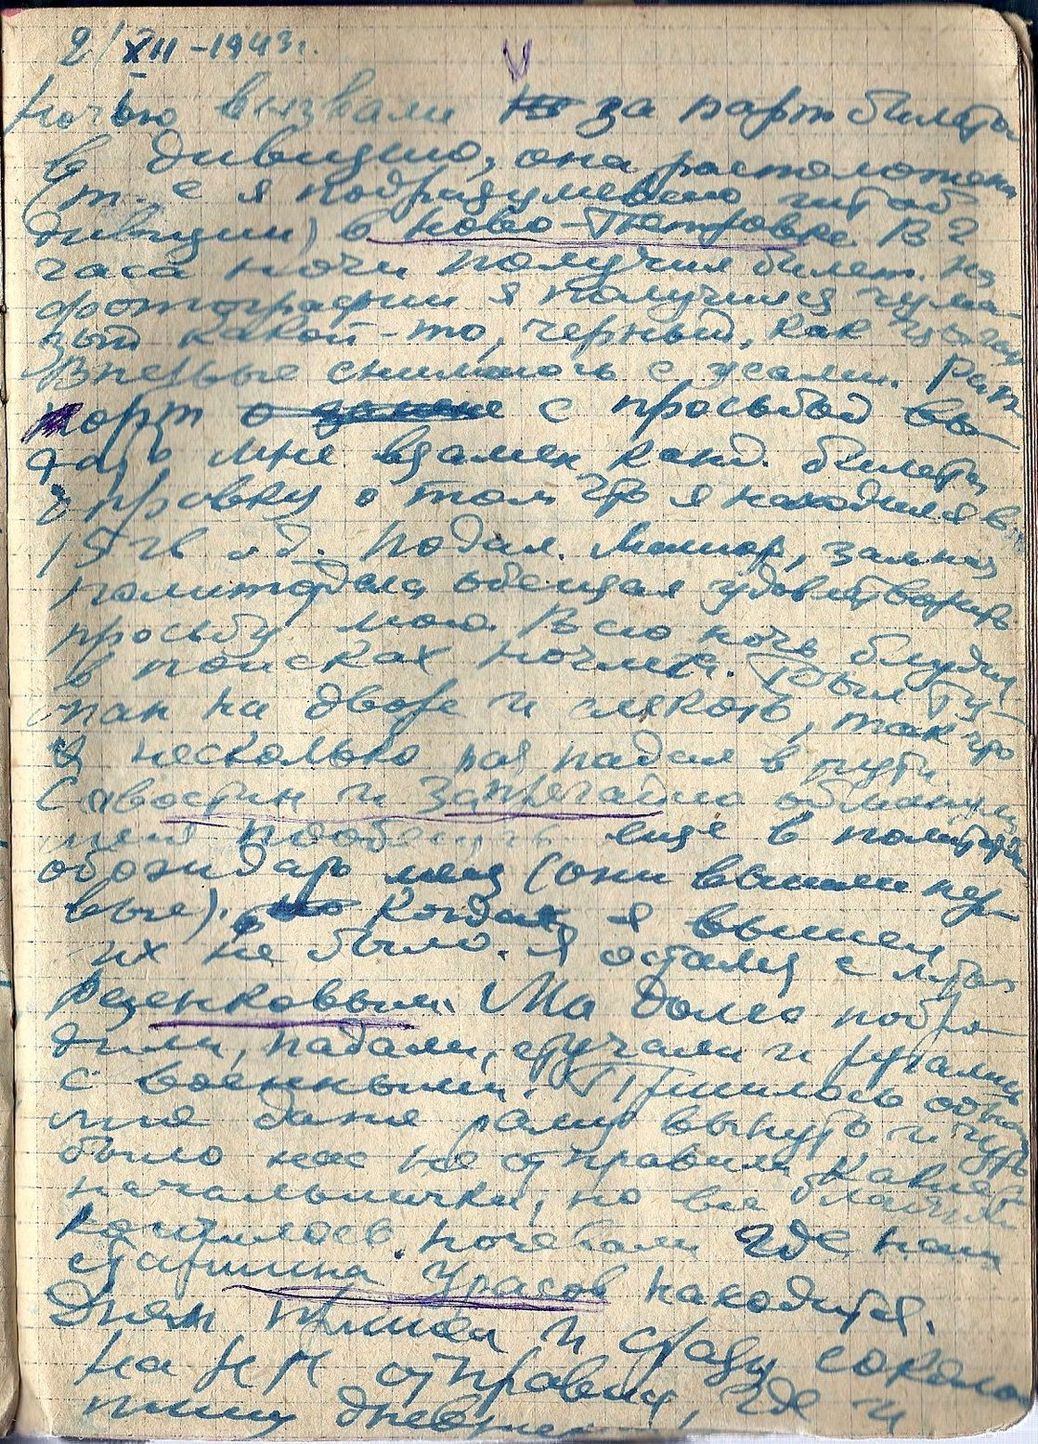 2/XII-1943г.
Ночью вызвали за парт билетом
в дивизию, она расположена
(т. е я подразумеваю штаб
дивизии) в Ново-Петровке. В 2
часа ночи получил билет. На
фотографии я получился чума-
зый какой-то, черный, как цыган
Впервые снимаюсь с усами. Рап-
порт с просьбой вы-
дать мне взамен канд. билета
справку о том что я находился в
15 гв с.д. подал. Майор, зам нач
политотдела обещал удовлетворить
просьбу мою. Всю ночь блудил
в поисках ночлега. Был ту-
ман на дворе и слякоть, так что
я несколько раз падал в пути.
Савостин и Запрегайло обманули
меня пообещать еще в политотделе
обождать меня (они вышли пер-
вые). Когда я вышел
их не было. Я остался с
Рещенковым. Мы долго побро-
дили, падали, стучали и ругались
с военными. Пришлось одному
мне даже раму вынуть и чуть
было нас не отправили к
начальнички, но все благополучно
кончилось. Ночевали где наш
старшина Урасов находится.
Днем пришел и сразу
на НП отправил, где и
пишу дневник